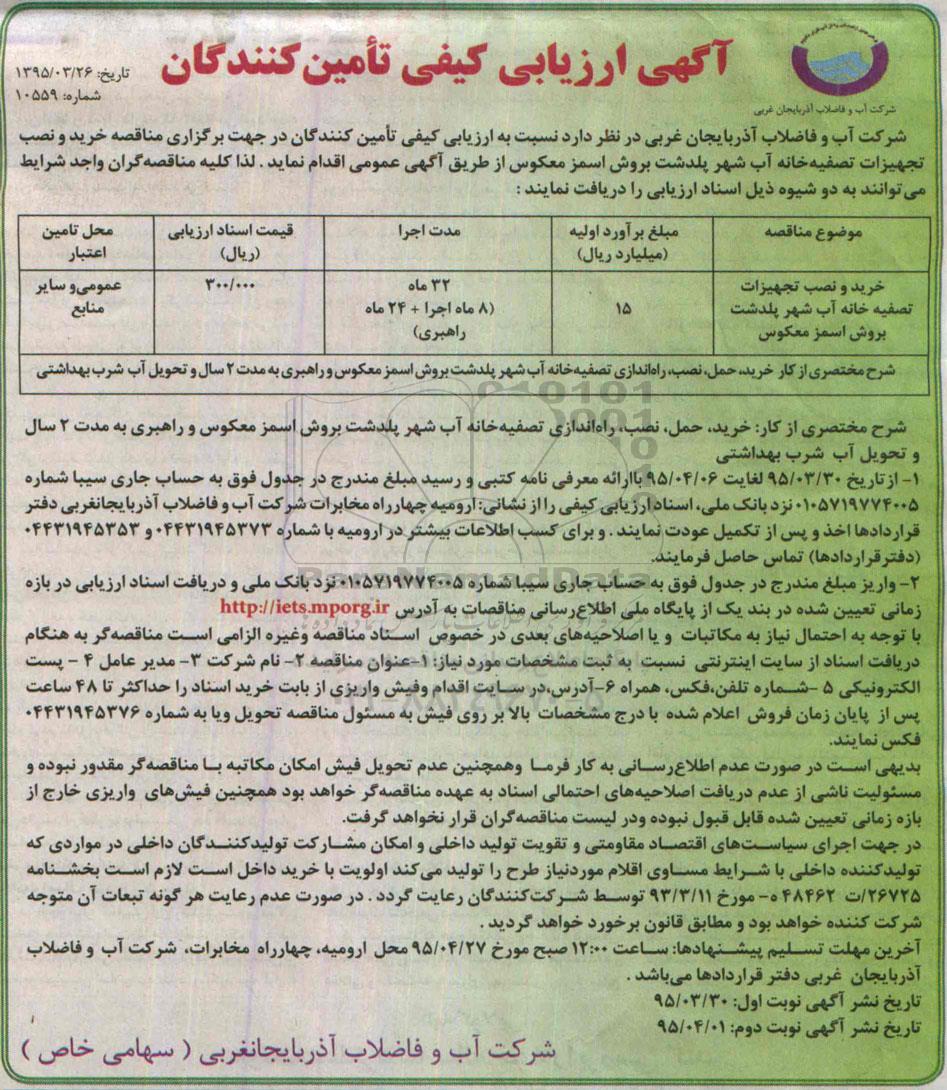 آگهی ارزیابی کیفی تأمین‌کنندگان
تاریخ: ۱۳۹۵/۰۳/۲۶
شماره: ۱۰۵۵۹
شرکت آب و فاضلاب آذربایجان غربی
شرکت آب و فاضلاب آذربایجان غربی در نظر دارد نسبت به ارزیابی کیفی تأمین کنندگان در جهت برگزاری مناقصه خرید و نصب
تجهیزات تصفیه‌خانه آب شهر پلدشت بروش اسمز معکوس از طریق آگهی عمومی اقدام نماید . لذا کلیه مناقصه‌گران واجد شرایط
می‌توانند به دو شیوه ذیل اسناد ارزیابی را دریافت نمایند :
موضوع مناقصه
مبلغ برآورد اولیه
(میلیارد ریال)
مدت اجرا
قیمت اسناد ارزیابی
(ریال)
محل تامین
اعتبار
خرید و نصب تجهیزات
تصفیه خانه آب شهر پلدشت
بروش اسمز معکوس
۱۵
۳۲ ماه
(۸ ماه اجرا + ۲۴ ماه
راهبری)
۳۰۰/۰۰۰
عمومی‌و سایر
منابع
شرح مختصری از کار خرید، حمل، نصب، راه‌اندازی تصفیه‌خانه آب شهر پلدشت بروش اسمز معکوس و راهبری به مدت ۲ سال و تحویل آب شرب بهداشتی
شرح مختصری از کار: خرید، حمل، نصب، راه‌اندازی تصفیه‌خانه آب شهر پلدشت بروش اسمز معکوس و راهبری به مدت ۲ سال
و تحویل آب شرب بهداشتی
۱- از تاریخ ۹۵/۰۳/۳۰ لغایت ۹۵/۰۴/۰۶ باارائه معرفی نامه کتبی و رسید مبلغ مندرج در جدول فوق به حساب جاری سیبا شماره
۰۱۰۵۷۱۹۷۷۴۰۰۵ نزد بانک ملی، اسناد ارزیابی کیفی را از نشانی: ارومیه چهارراه مخابرات شرکت آب و فاضلاب آذربایجانغربی دفتر
قراردادها اخذ و پس از تکمیل عودت نمایند . و برای کسب اطلاعات بیشتر در ارومیه با شماره ۰۴۴۳۱۹۴۵۳۷۳ و ۰۴۴۳۱۹۴۵۳۵۳
(دفترقراردادها) تماس حاصل فرمایند.
۲- واریز مبلغ مندرج در جدول فوق به حساب جاری سیبا شماره ۰۱۰۵۷۱۹۷۷۴۰۰۵ نزد بانک ملی و دریافت اسناد ارزیابی در بازه
زمانی تعیین شده در بند یک از پایگاه ملی اطلاع‌رسانی مناقصات به آدرس http://iets.mporg.ir
با توجه به احتمال نیاز به مکاتبات و یا اصلاحیه‌های بعدی در خصوص اسناد مناقصه وغیره الزامی است مناقصه‌گر به هنگام
دریافت اسناد از سایت اینترنتی نسبت به ثبت مشخصات مورد نیاز: ۱-عنوان مناقصه ۲- نام شرکت ۳- مدیر عامل ۴ - پست
الکترونیکی ۵ -شماره تلفن،فکس، همراه ۶-آدرس،در سایت اقدام وفیش واریزی از بابت خرید اسناد را حداکثر تا ۴۸ ساعت
پس از پایان زمان فروش اعلام شده با درج مشخصات بالا بر روی فیش به مسئول مناقصه تحویل ویا به شماره ۰۴۴۳۱۹۴۵۳۷۶
فکس نمایند.
بدیهی است در صورت عدم اطلاع‌رسانی به کار فرما وهمچنین عدم تحویل فیش امکان مکاتبه با مناقصه‌گر مقدور نبوده و
مسئولیت ناشی از عدم دریافت اصلاحیه‌های احتمالی اسناد به عهده مناقصه‌گر خواهد بود همچنین فیش‌های واریزی خارج از
بازه زمانی تعیین شده قابل قبول نبوده ودر لیست مناقصه‌گران قرار نخواهد گرفت.
در جهت اجرای سیاست‌های اقتصاد مقاومتی و تقویت تولید داخلی و امکان مشارکت تولیدکنندگان داخلی در مواردی که
تولیدکننده داخلی با شرایط مساوی اقلام موردنیاز طرح را تولید می‌کند اولویت با خرید داخل است لازم است بخشنامه
۲۶۷۲۵/ت ۴۸۴۶۲ ه- مورخ ۹۳/۳/۱۱ توسط شرکت‌کنندگان رعایت گردد . در صورت عدم رعایت هر گونه تبعات آن متوجه
شرکت کننده خواهد بود و مطابق قانون برخورد خواهد گردید .
آخرین مهلت تسلیم پیشنهادها: ساعت ۱۲:۰۰ صبح مورخ ۹۵/۰۴/۲۷ محل ارومیه، چهارراه مخابرات، شرکت آب و فاضلاب
آذربایجان غربی دفتر قراردادها می‌باشد .
تاریخ نشر آگهی نوبت اول: ۹۵/۰۳/۳۰
تاریخ نشر آگهی نوبت دوم: ۹۵/۰۴/۰۱
شرکت آب و فاضلاب آذربایجانغربی ( سهامی خاص )